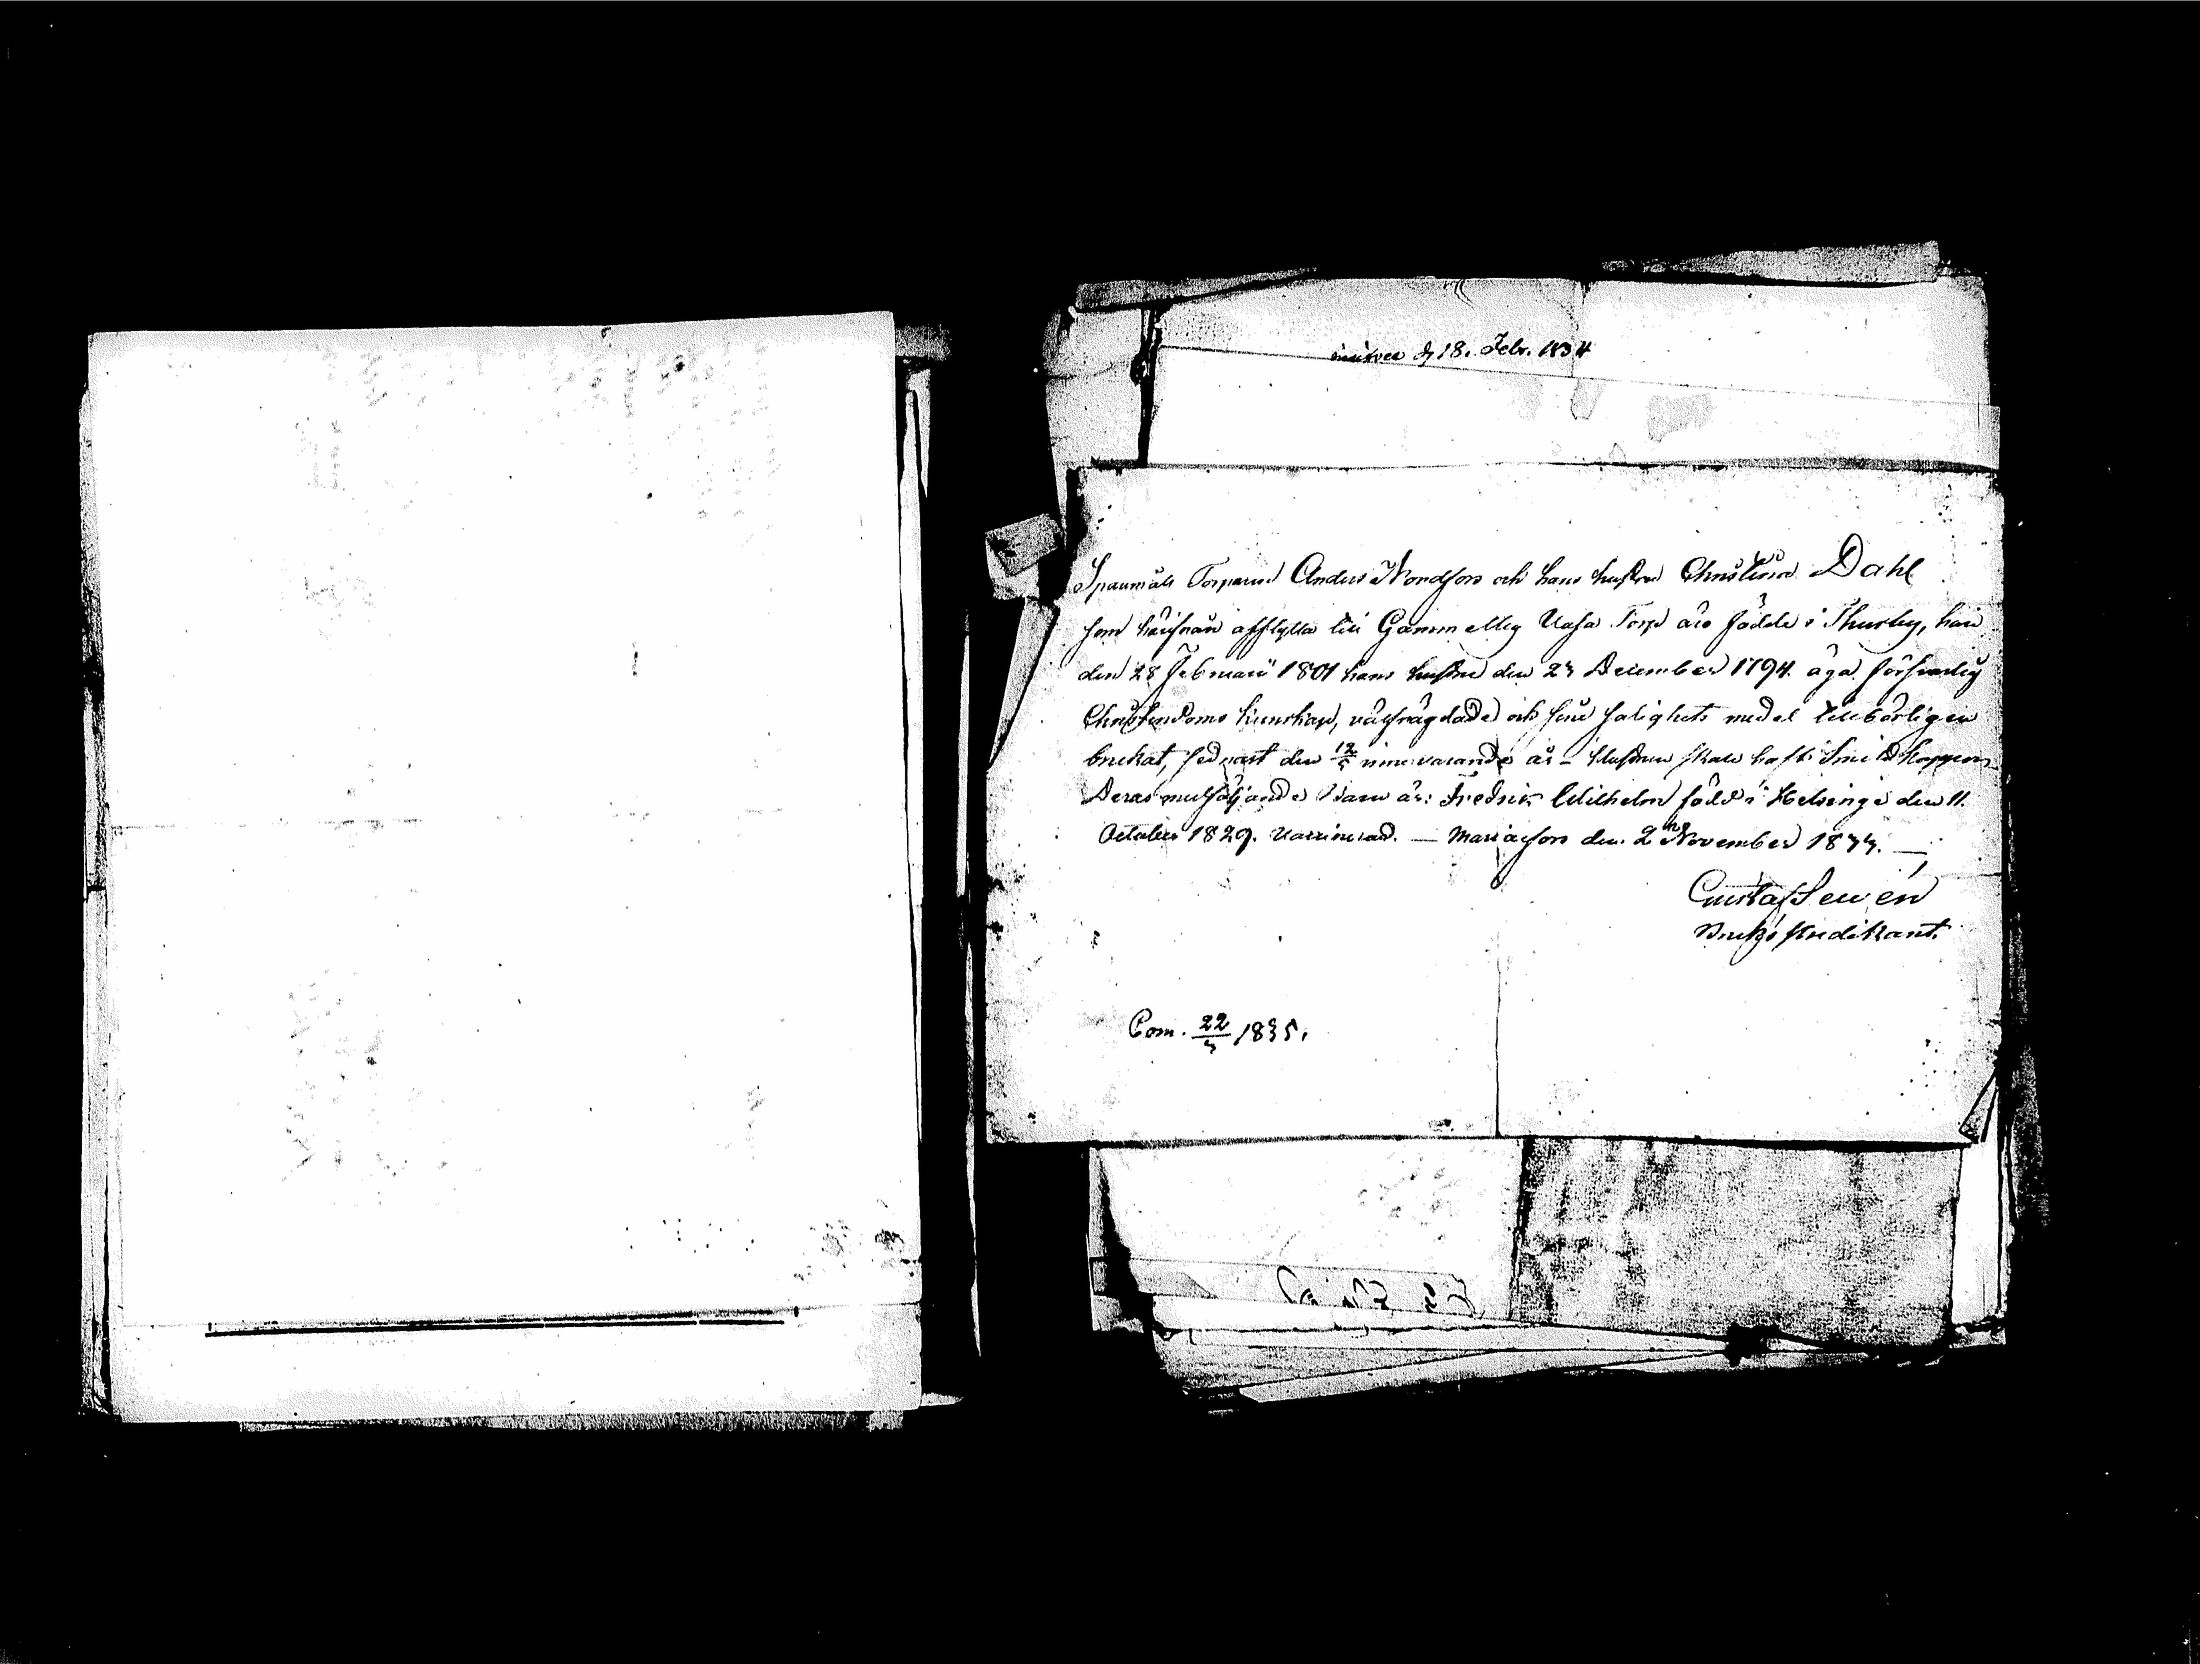 inskrev d 18. Febr. 1834
Spanmåls Torparen Anders Nordfors och hans hustru Christina Dahl
som härifrån afflytta till Gammelby Uasa Torp äro födde i Thusby, han
den 28 Februarii 1801 hans hustru den 23 December 1794. äga försvarlig
Christendoms kunskap, väl frägdade och sine salighets medel tillbörligen
brukat, sednast den 12/5 innevarande år – Hustrun skall haft Smittkoppor
Deras medföljande Barn är: Fredric Wilhelm född i Helsinge den 11.
October 1829. Vaccinerad. — Mariæfors den 2 November 1833. —
Gustaf Lewén
Bruks Predikant.
Com. 22/3 1835.